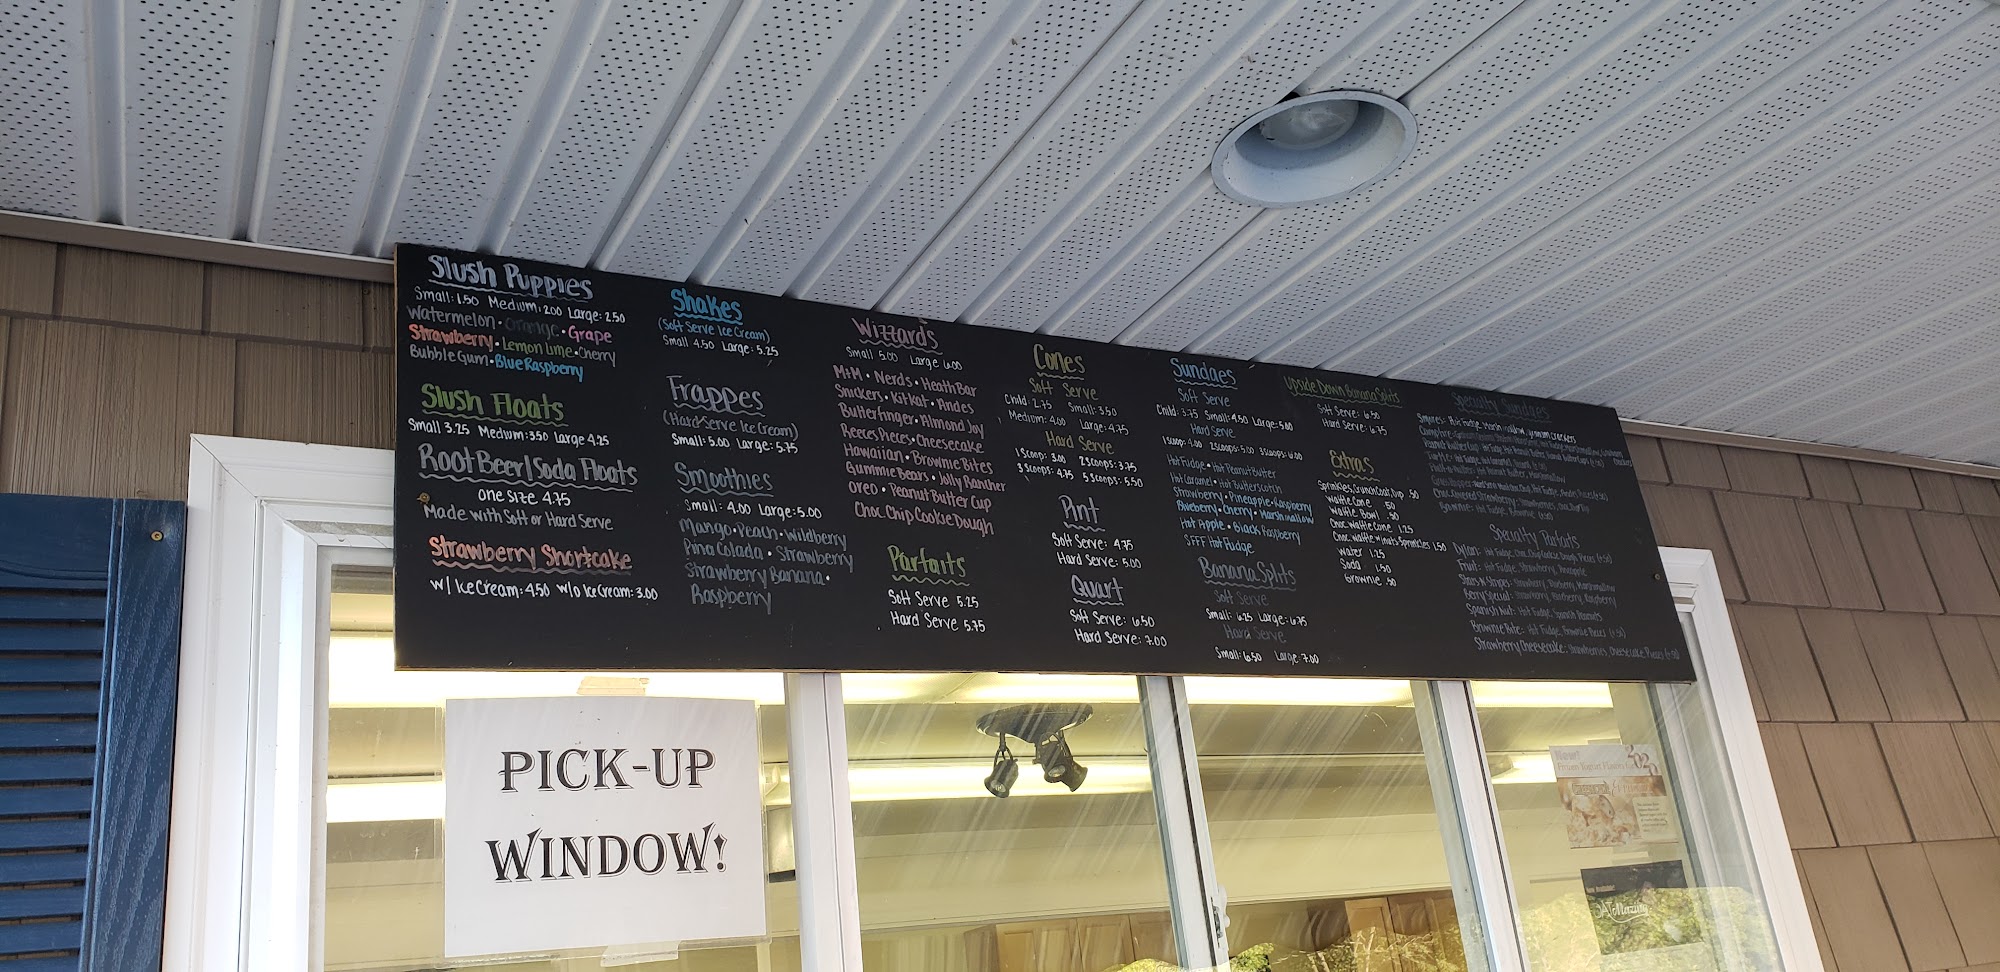 Slush Puppies
Small: 1.50 Medium: 2.00 Large: 2.50
Watermelon • Orange • Grape
Strawberry • Lemon Lime • Cherry
Bubble Gum • Blue Raspberry
Slush Floats
Small 3.25 Medium: 3.50 Large 4.25
Root Beer/Soda Floats
One Size 4.75
Made with Soft or Hard Serve
Strawberry Shortcake
w/ Ice Cream: 4.50 w/o Ice Cream: 3.00
Shakes
(Soft Serve Ice Cream)
Small 4.50 Large: 5.25
Frappes
(Hard Serve Ice Cream)
Small: 5.00 Large: 5.75
Smoothies
Small: 4.00 Large: 5.00
Mango • Peach • Wildberry
Pina Colada • Strawberry
Strawberry Banana •
Raspberry
Wizzards
Small 5.00 Large 6.00
M&M • Nerds • Heath Bar
Snickers • Kit Kat • Andes
Butterfinger • Almond Joy
Reeces Pieces • Cheesecake
Hawaiian • Brownie Bites
Gummie Bears • Jolly Rancher
Oreo • Peanut Butter Cup
Choc Chip Cookie Dough
Parfaits
Soft Serve 5.25
Hard Serve 5.75
Cones
Soft Serve
Child: 2.75 Small: 3.50
Medium: 4.00 Large: 4.75
Hard Serve
1 Scoop: 3.00 2 Scoops: 3.75
3 Scoops: 4.75 5 Scoops: 5.50
Pint
Soft Serve: 4.75
Hard Serve: 5.00
Quart
Soft Serve: 6.50
Hard Serve: 7.00
Sundaes
Soft Serve
Child: 3.75 Small: 4.50 Large: 5.00
Hard Serve
1 Scoop: 4.00 2 Scoops: 5.00 3 Scoops: 6.00
Hot Fudge • Hot Peanut Butter
Hot Caramel • Hot Butterscotch
Strawberry • Pineapple • Raspberry
Blueberry • Cherry • Marshmallow
Hot Apple • Black Raspberry
SFFF Hot Fudge
Banana Splits
Soft Serve
Small: 6.25 Large: 6.75
Hard Serve
Small: 6.50 Large: 7.00
Upside Down Banana Splits
Soft Serve: 6.50
Hard Serve: 6.75
Extras
Sprinkles, Crunch Coat, Dip .50
Waffle Cone .50
Waffle Bowl .50
Choc Waffle Cone 1.25
Choc Waffle w/nuts, Sprinkles 1.50
Water 1.25
Soda 1.50
Brownie .50
Specialty Sundaes
Smores: Hot Fudge, Marshmallow, Graham Crackers
Specialty Parfaits
Dylan: Hot Fudge, Choc. Chip Cookie Dough Pieces
Fruit: Hot Fudge, Strawberry, Pineapple
Stars N Stripes: Strawberry, Blueberry, Marshmallow
Berry Special: Strawberry, Blueberry, Raspberry
Spanish Nut: Hot Fudge, Spanish Peanuts
Brownie Bite: Hot Fudge, Brownie Pieces
Strawberry Cheesecake: Strawberries, Cheesecake Pieces
PICK-UP
WINDOW!
New!